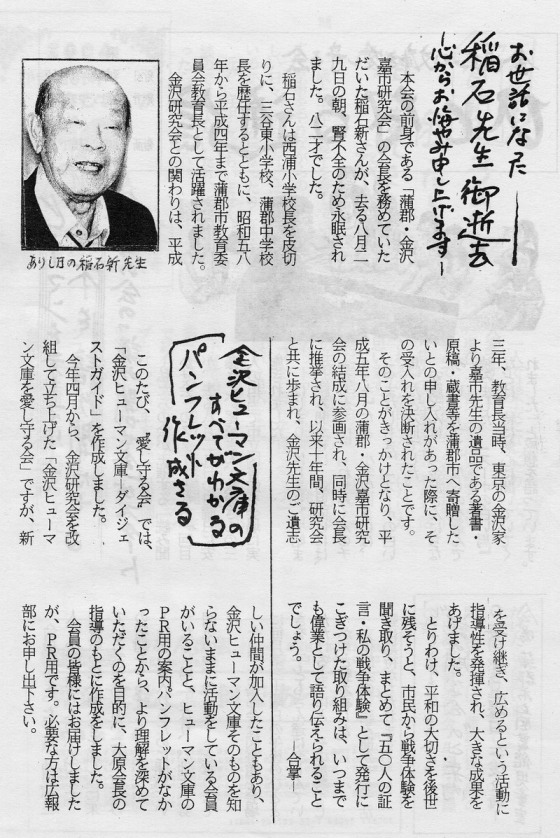 お世話になった
稲石先生御逝去
―心からお悔やみ申し上げます―
本会の前身である「蒲郡・金沢
嘉市研究会」の会長を務めていた
だいた稲石新さんが、去る八月二
九日の朝、腎不全のため永眠され
ました。八二才でした。
稲石さんは西浦小学校長を皮切
りに、三谷東小学校、蒲郡中学校
長を歴任するとともに、昭和五八
年から平成四年まで蒲郡市教育委
員会教育長として活躍されました。
金沢研究会との関わりは、平成
ありし日の稲石新先生
三年、教育長当時、東京の金沢家
より嘉市先生の遺品である著書・
原稿・蔵書等を蒲郡市へ寄贈した
いとの申し入れがあった際に、そ
の受入れを決断されたことです。
そのことがきっかけとなり、平
成五年八月の蒲郡・金沢嘉市研究
会の結成に参画され、同時に会長
に推挙され、以来十年間、研究会
と共に歩まれ、金沢先生のご遺志
を受け継ぎ、広めるという活動に
指導性を発揮され、大きな成果を
あげました。
とりわけ、平和の大切さを後世
に残そうと、市民から戦争体験を
聞き取り、まとめて『五〇人の証
言・私の戦争体験』として発行に
こぎつけた取り組みは、いつまで
も偉業として語り伝えられること
でしょう。 ―合掌―
金沢ヒューマン文庫の
すべてがわかる
パンフレット
作成さる
このたび、“愛し守る会”では、
「金沢ヒューマン文庫―ダイジェ
ストガイド」を作成しました。
今年四月から、金沢研究会を改
組して立ち上げた「金沢ヒューマ
ン文庫を愛し守る会」ですが、新
しい仲間が加入したこともあり、
金沢ヒューマン文庫そのものを知
らないままに活動をしている会員
がいることと、ヒューマン文庫の
PR用の案内パンフレットがなか
ったことから、より理解を深めて
いただくのを目的に、大原会長の
指導のもとに作成をしました。
会員の皆様にはお届けしました
が、PR用です。必要な方は広報
部にお申し出下さい。